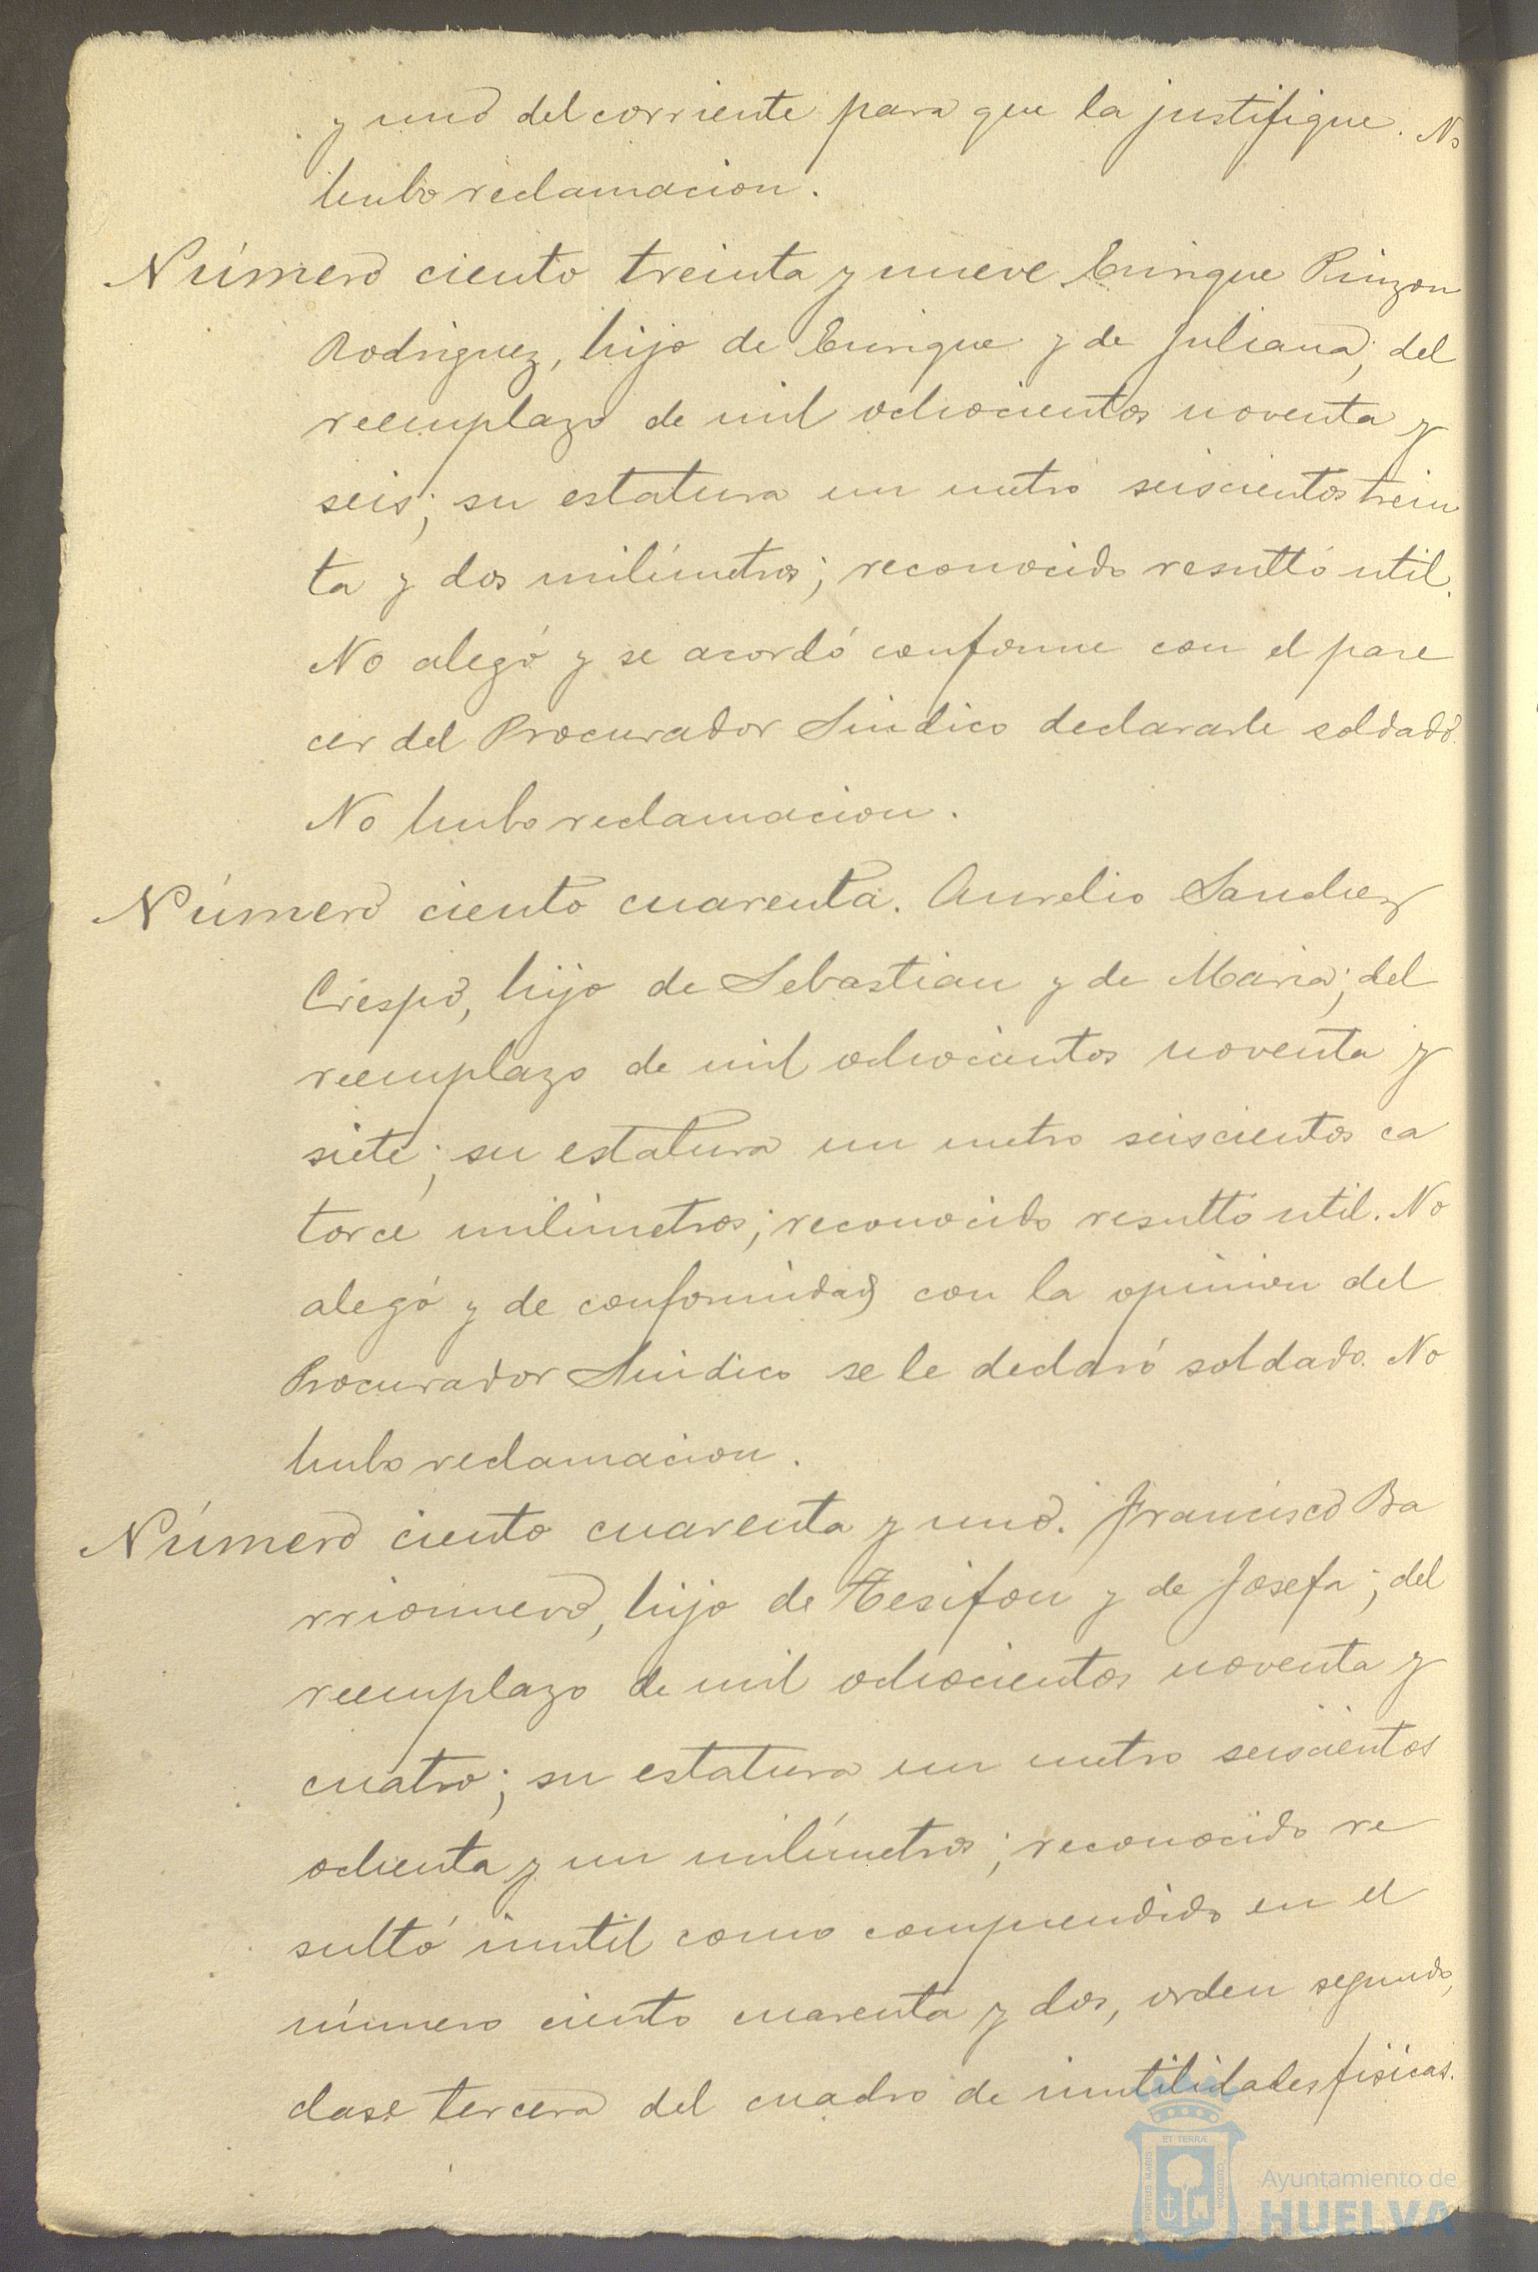 y uno del corriente para que la justifique. No
hubo reclamacion.
Número ciento treinta y nueve Enrique Pinzon
Rodriguez, hijo de Enrique y de Juliana; del
reemplazo de mil ochocientos noventa y
seis; su estatura un metro seiscientos trein
ta y dos milímetros; reconocido resultó util.
No alegó y se acordó conforme con el pare
cer del Procurador Sindico declararle soldado.
No hubo reclamacion.
Número ciento cuarenta. Aurelio Sanchez
Crespo, hijo de Sebastian y de Maria; del
reemplazo de mil ochocientos noventa y
siete; su estatura un metro seiscientos ca
torce milímetros; reconocido resultó util. No
alegó y de conformidad con la opinion del
Procurador Sindico se le declaró soldado. No
hubo reclamacion.
Número ciento cuarenta y uno. Francisco Ba
rrionuevo, hijo de Tesifon y de Josefa; del
reemplazo de mil ochocientos noventa y
cuatro; su estatura un metro seiscientos
ochenta y un milímetros; reconocido re
sultó inutil como comprendido en el
número ciento cuarenta y dos, orden segundo,
clase tercera del cuadro de inutilidades fisicas.
PORTUS MARIS ET TERRAE CUSTODIA
Ayuntamiento de
HUELVA